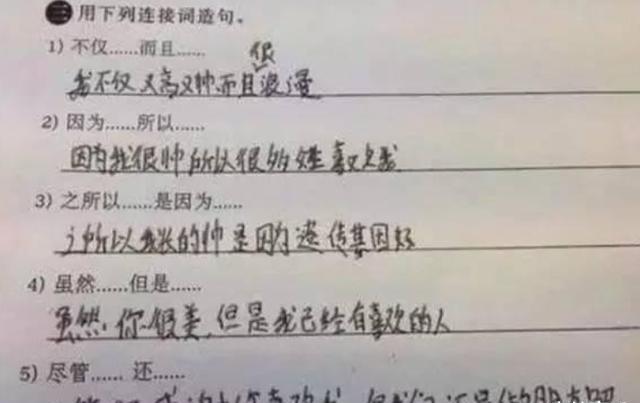 三 用下列连接词造句。
1) 不仅……而且……
很
我不仅又高又帅而且浪漫
2) 因为……所以……
因为我很帅所以很多女生喜欢我
3) 之所以……是因为……
之所以我长的帅是因为遗传基因好
4) 虽然……但是……
虽然你很美,但是我已经有喜欢的人
5) 尽管……还……